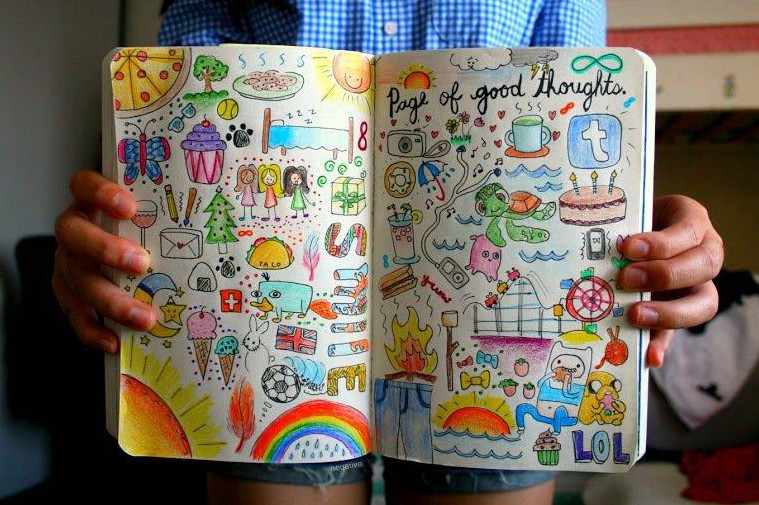 Page of good thoughts.
z z z
8
t
TACO
SMILE
yum!
LOL
negative